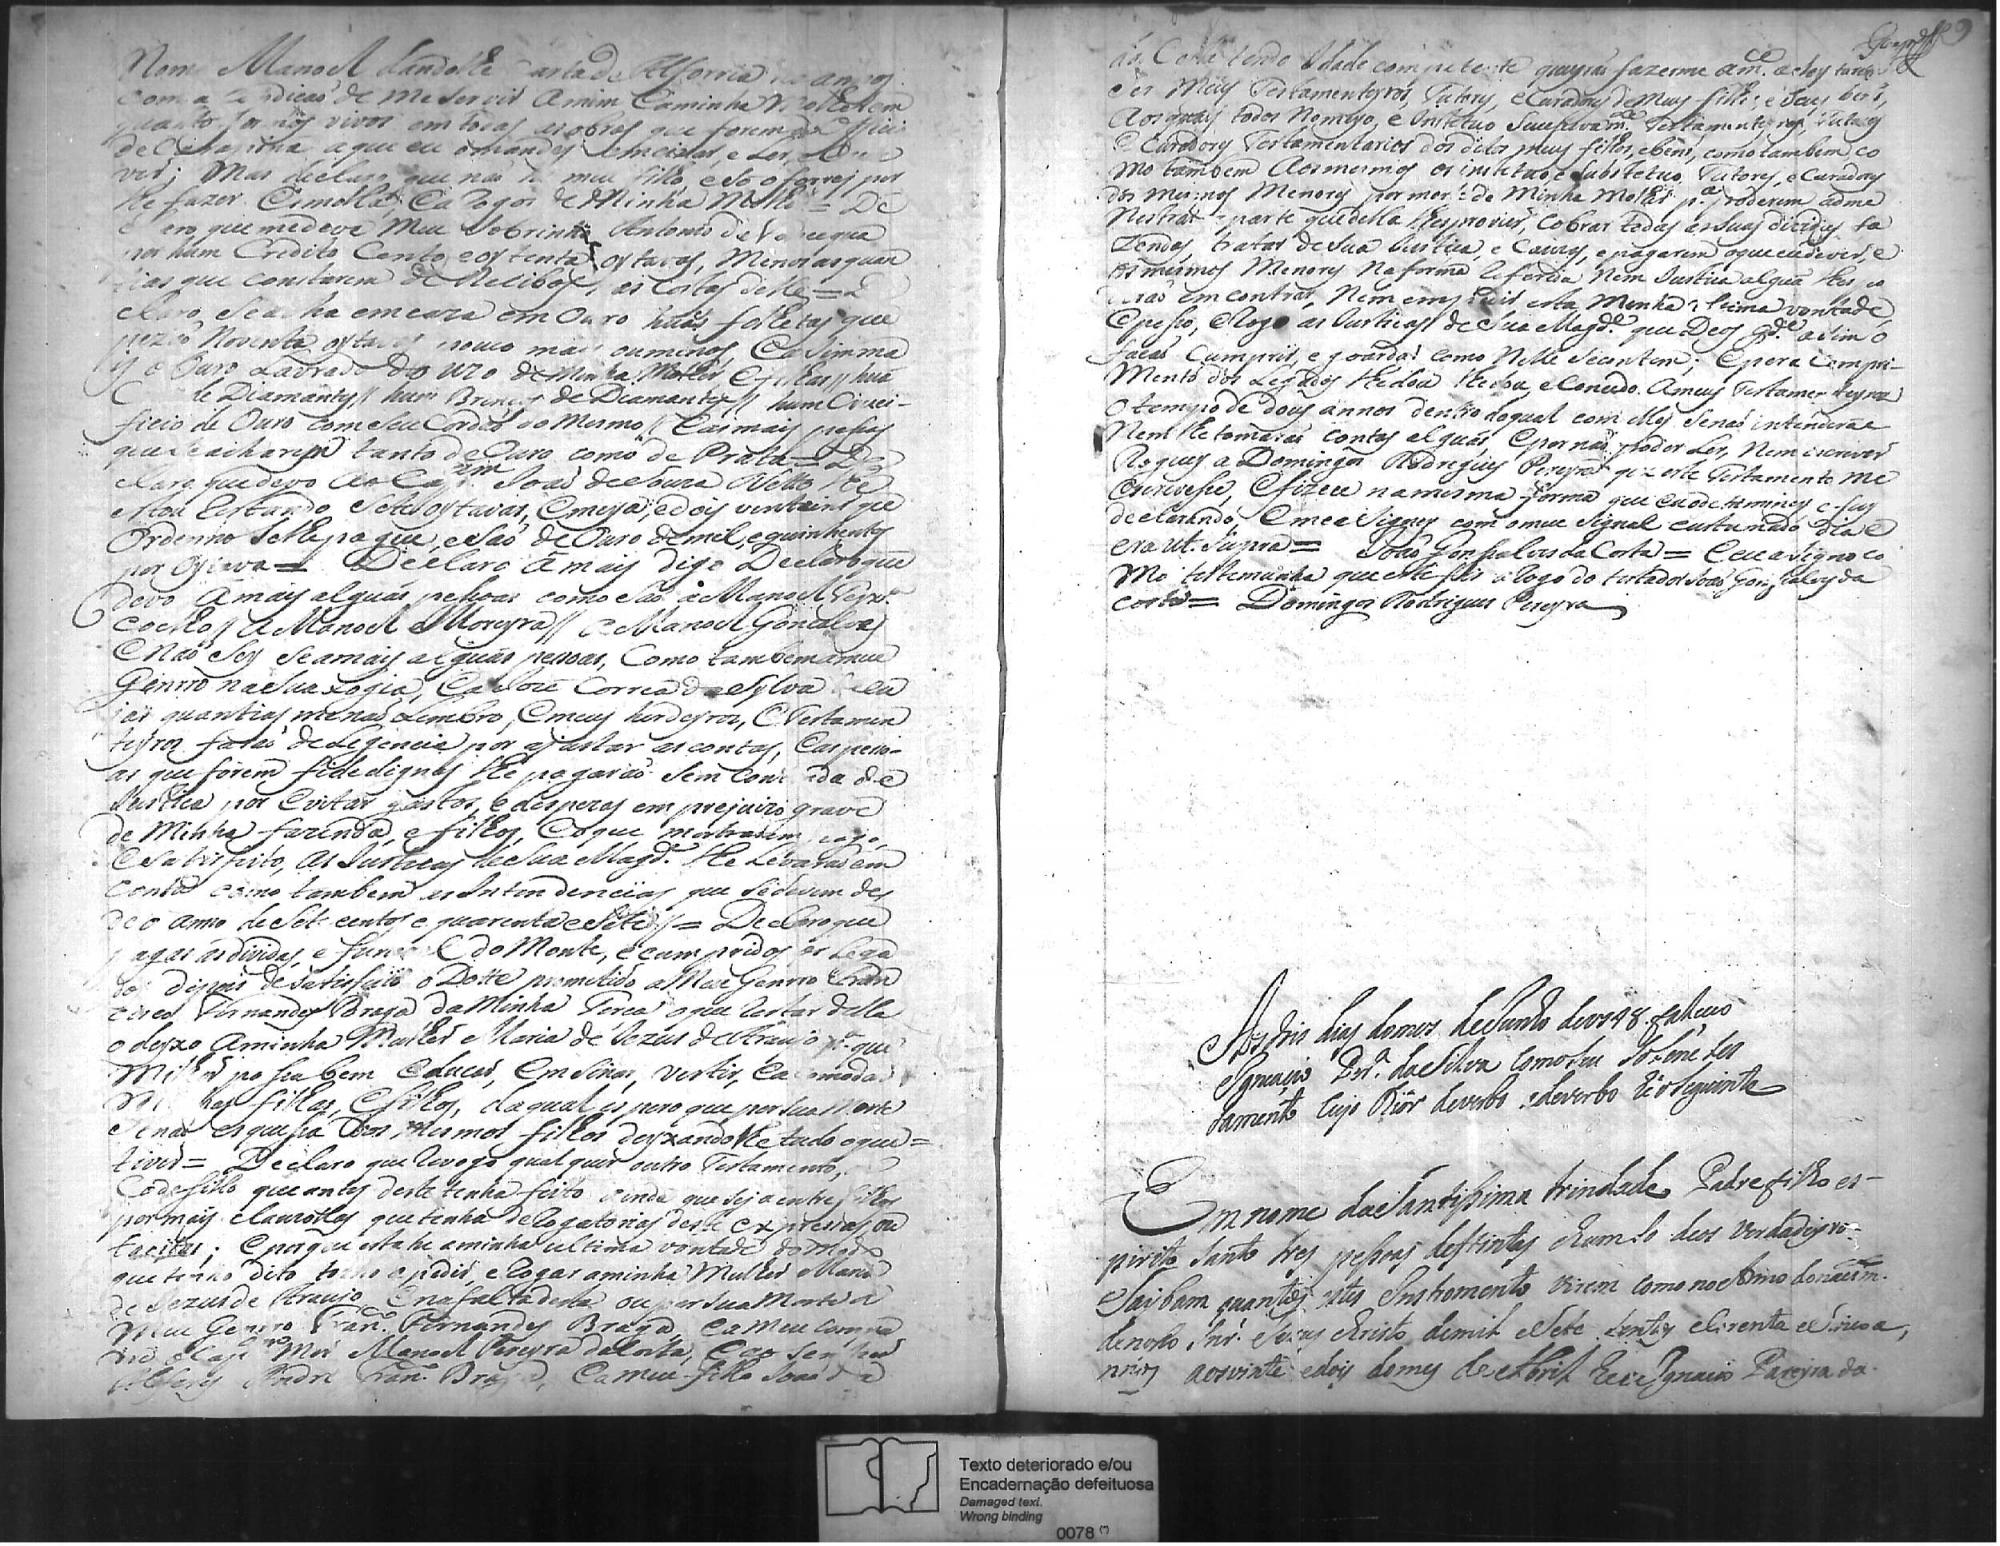 Nome Manoel dandolhe Carta de Alforria
com a condicaõ de me servir amim Caminha Molher em
quanto formos vivos em todas as obras que forem
de a que eu o mandey ensinar, e
vir; Mas declaro que naõ he meu filho, e só o forrey por
lhe fazer Esmolla, e a Rogos de Minha Molher = De
claro que me deve Meu Sobrinho Antonio de
por hum Credito Cento e oitenta oytavas, Menos as quan
tias que constarem de Recibos, as Costas delle = De
claro, se acha em caza em Ouro huãs folhetas que
pezaõ Noventa oytavas pouco mais ou menos, E asimma
is o Ouro Lavrado do uzo de Minha Molher,
de Diamantes // huns Brincos de Diamantes // hum Cruci-
ficio de Ouro com seu Cordaõ do Mesmo // E as mais pessas
que se acharem tanto de Ouro como de Prata = De
claro que devo ao Capam Joaõ de Souza Netto lhe
estou Restando Sete oytavas, e meya, e dois vinteins que
Ordenno se lhe pague, e saõ de Ouro de mil, e quinhentos
por Oytava = Declaro a mais digo Declaro que
devo a mais algüas pessoas como saõ a Manoel
Coelho // a Manoel Moreyra // a Manoel Goncalves
E Naõ sey se a mais algüas pessoas, Como tambem a meu
Genrro na sua Logia, E a José Correa da Sylva
jas quantias me naõ Lembro, e meus herdeyros, e Testamen
teyros faraõ deLigencia por ajustar as contas, E as peso-
as que forem fidedignas lhe pagaraõ sem contenda de
Justica, por Evitar gastos, e despezas em prejuizo grave
de Minha fazenda, e filhos, E o que mostrarem pago,
E satisfeito, as Justicas de Sua Magde. lhe Levaraõ em
Conta como tambem as Intendencias que se devem des
de o anno de Sete centos e quarenta e Sete // = Declaro que
pagas as dividas, e funeral do Monte, e cumpridos os Lega
dos depois de satisfeito o Dotte prometido a Meu Genrro Fran
cisco Fernandes Braga da Minha Terca o que restar della
o deyxo a minha Mulher Maria de Jezus de Araujo pa. que
Milhor possa bem Educar, Ensinar, vestir, E acomodar
Minhas filhas, E filhos, da qual espero que por sua Morte
Se naõ esquessa dos Mesmos filhos deyxandolhe tudo o que =
tiver = Declaro que Revogo qualquer outro Testamento,
Codesillo que antes deste tenha feito ainda que seja entre filhos
por mais clauzullas que tenha derogatorias deste expressas ou
tacitas; E porque esta he a minha ultima vontade do Modo
que tenho dito torno a pedir, e Rogar a minha Mulher Maria
de Jezus de Araujo E na falta desta ou por sua Morte a
Meu Genrro Fran.co Fernandes Braga, E a Meu Compa
dre o Capam Mor Manoel Pereyra da Costa, E ao Senhor
Alferes Andre Fran.co Braga, E a meu filho Joaõ da
do. E elle tendo Idade competente queyraõ fazerme a m.ce acsey tarem
ser Meus Testamenteyros, Tutores, e Curadores de Meus filhos, e seus bens,
Aos quais todos Nomeyo, e Instetuo Sucesivam.te Testamenteyros, Tutores
E Curadores Testamentarios dos ditos meus filhos, e bens, como tambem co
mo tambem Aos mesmos os instetuo e Substetuo Tutores, e Curadores
dos mesmos Menores por morte de Minha Molher pa. poderem adme
nestrar a parte que della lhes provier, Cobrar todas as suas dividas fa
zendas, tratar de sua Justica, e Cauzas, e pagarem o que eu dever, e
os mesmos Menores na forma Referida Nem Justica algüa lhes
em contrar, Nem empedir esta Minha ultima vontade
E pesso, e Rogo as Justicas de Sua Magde. que Deos gde. asim o
facaõ Cumprir, e goardar como Nelle se contem; E pera Compri-
mento dos Legados lhe dou e Concedo a meus Testamenteyros
O tempo de dous annos dentro do qual com elles se naõ intenderaõ
Nem lhe tomaraõ contas algüas, E por naõ poder Ler, Nem escrever
Roguey a Domingos Rodrigues Pereyra que este Testamento me
Escrevese, E fizece na mesma forma que eu o determiney e fuy
declarando, E me a Signey com o meu signal custumado Dia e
era ut. supra = Joaõ Gonsalves da Costa = E eu a Signo co
mo testemunha que este fis a Rogo do testador Joaõ Gonzalves da
Costa = Domingos Rodrigues Pereyra
Aos tris dias do mes de Junho de 1748 faleceo
Ignacio Pra. da Silva com o seu Solene tes
tamento cujo theor de verbo adeverbo he o seguinte
Em nome da Santissima trindade Padre filho es-
pirito Santo tres pessoas destintas e hum so deos verdadeyro.
Saibam quantos este Instromento virem como no Anno do nacim.
de nosso Snr. Jezus Christo de mil e Sete Sentos e Coarenta e Sinco a,
nnos aos vinte e dois do mes de Abril Eu Ignacio Pareyra da
Texto deteriorado e/ou
Encadernação defeituosa
Damaged text.
Wrong binding
0078 (*)